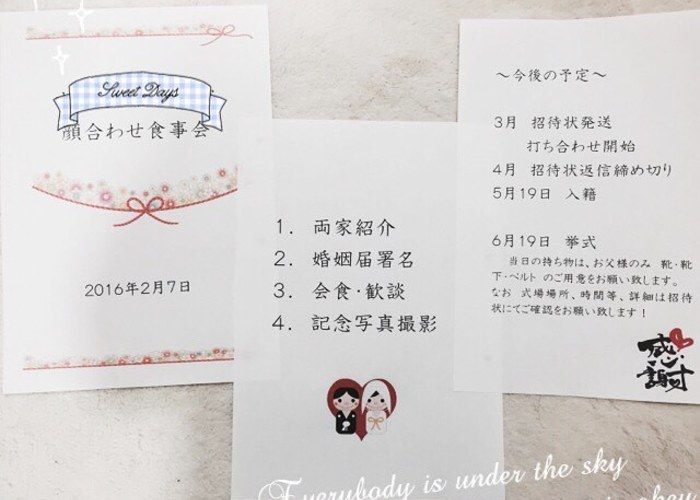 Sweet Days
顔合わせ食事会
2016年2月7日
1. 両家紹介
2. 婚姻届署名
3. 会食・歓談
4. 記念写真撮影
～今後の予定～
3月 招待状発送
打ち合わせ開始
4月 招待状返信締め切り
5月19日 入籍
6月19日 挙式
当日の持ち物は、お父様のみ 靴・靴
下・ベルト のご用意をお願い致します。
なお 式場場所、時間等、詳細は招待
状にてご確認をお願い致します!
感謝
Everybody is under the sky